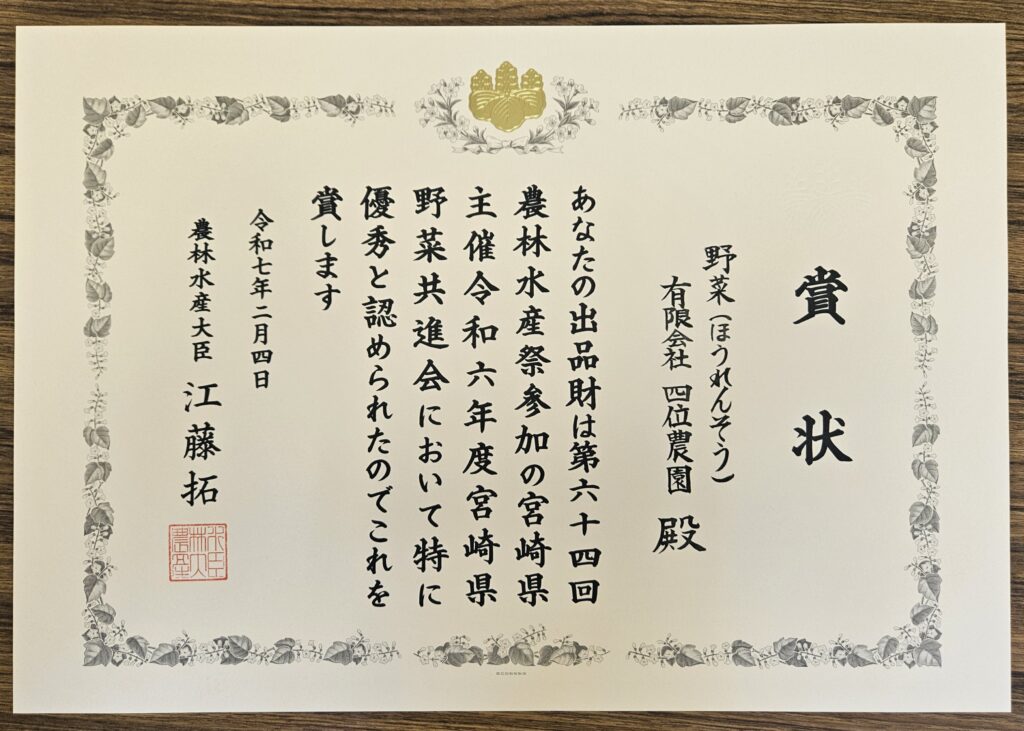 賞状
野菜（ほうれんそう）
有限会社 四位農園 殿
あなたの出品財は第六十四回
農林水産祭参加の宮崎県
主催令和六年度宮崎県
野菜共進会において特に
優秀と認められたのでこれを
賞します
令和七年二月四日
農林水産大臣 江藤拓